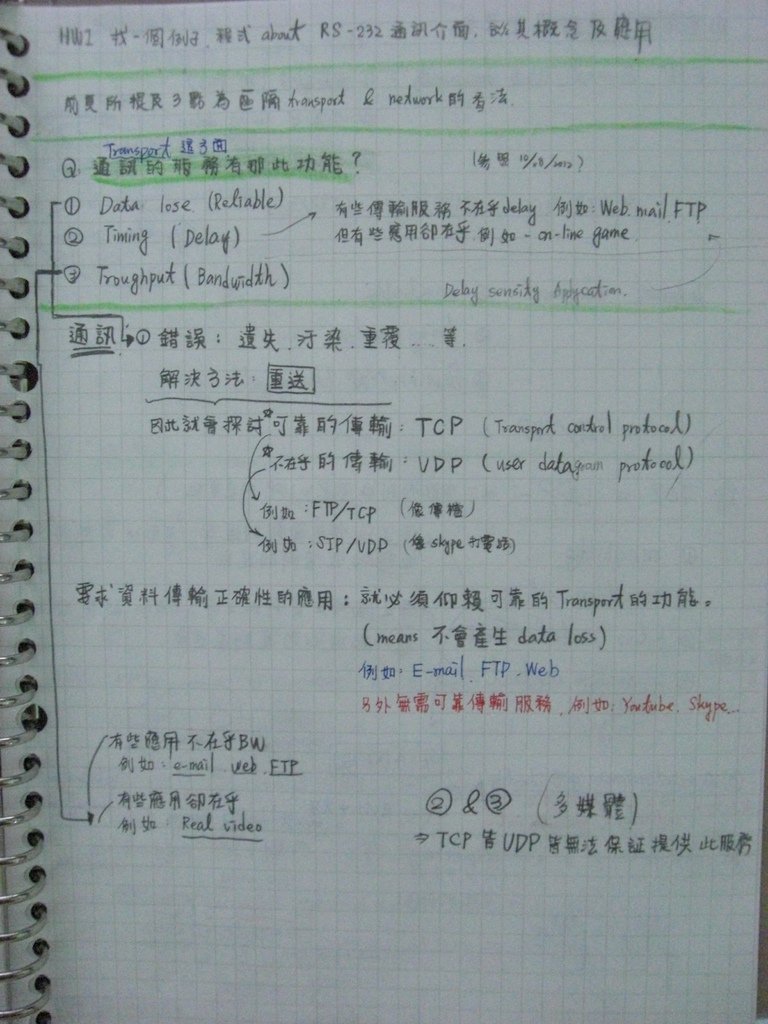 HW1 找一個例子.程式 about RS-232 通訊介面.談其概念及應用
前頁所提及3點為區隔 transport & network的看法.
Transport 這3面
Q. 通訊的服務有那此功能?
(參照 10/8/2012)
① Data lose (Reliable)
有些傳輸服務不在乎delay 例如:Web.mail.FTP
② Timing (Delay)
但有些應用卻在乎.例如-on-line game.
③ Troughput (Bandwidth)
Delay sensity Appycation.
通訊 ① 錯誤:遺失.汙染.重覆....等.
解決方法:重送
因此就會探討 可靠的傳輸:TCP (Transport control protocol)
不在乎的傳輸:UDP (user datagram protocol)
例如:FTP/TCP (像傳檔)
例如:SIP/UDP (像skype打電話)
要求資料傳輸正確性的應用:就必須仰賴可靠的Transport的功能。
(means 不會產生data loss)
例如:E-mail.FTP.Web
另外無需可靠傳輸服務.例如:Youtube.Skype...
有些應用不在乎BW
例如:e-mail.web.FTP
有些應用卻在乎
例如:Real video
② & ③ (多媒體)
⇒ TCP 皆 UDP 皆無法保証提供此服務